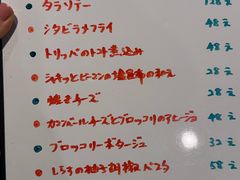 タラソテー 128え
シタビラメフライ 48え
トリッパのトマト煮込み 48え
シャキッとピーマンの塩昆布の和え 28え
焼きチーズ 28え
カマンベールチーズとブロッコリのアヒージョ 48え
ブロッコリーポタージュ 32え
しらすの柚子胡椒パスタ 58え